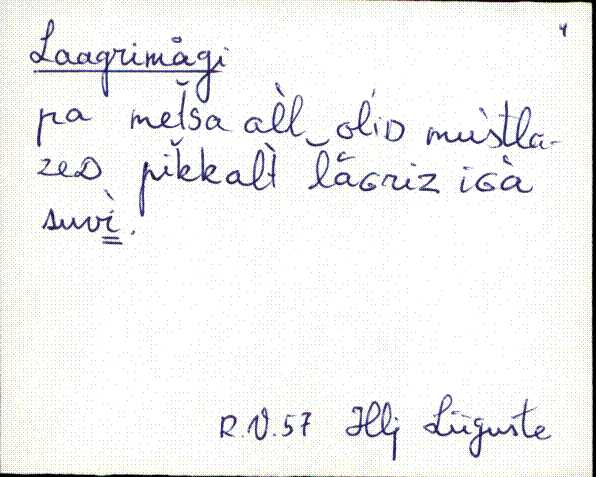 4
Laagrimägi
pa metsa al̀l‿olid mùstla-
zeD pĭkkalt lăGriz iGà
suvì.
R.V.57 Hlj Lüguste